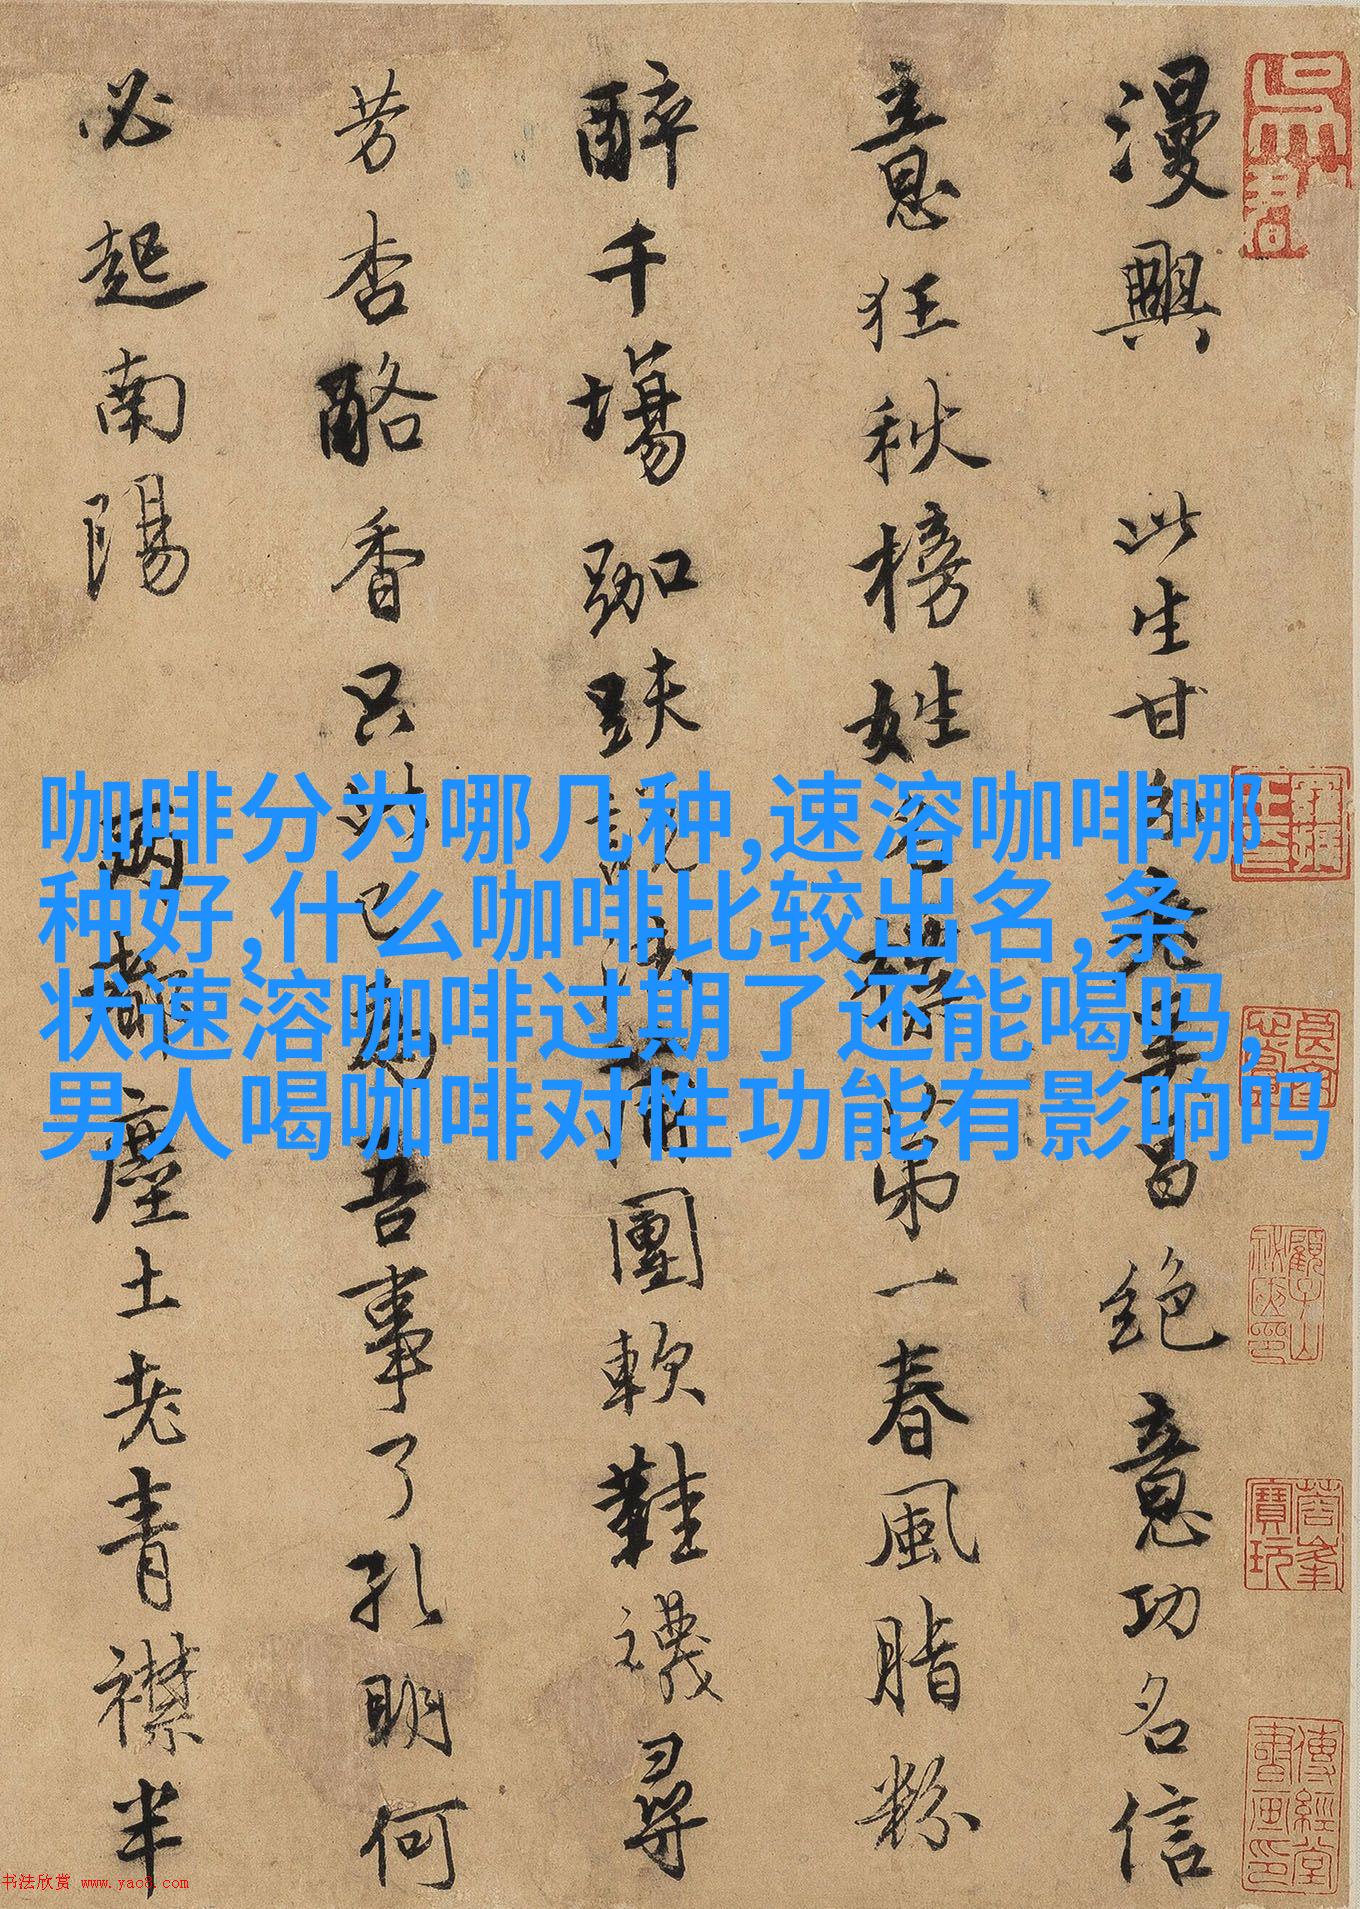 漫興 此生甘
絕意功名信
意狂秋榜姓名
第一春風脂粉
醉千場跏趺說法
團軟鞋襪尋
芳杏酪香只此已為吾事了孔明何
必起南陽
兩
塵土老青襟半
咖啡分为哪几种,速溶咖啡哪
种好,什么咖啡比较出名,条
状速溶咖啡过期了还能喝吗,
男人喝咖啡对性功能有影响吗
书法欣赏 www.yac8.com